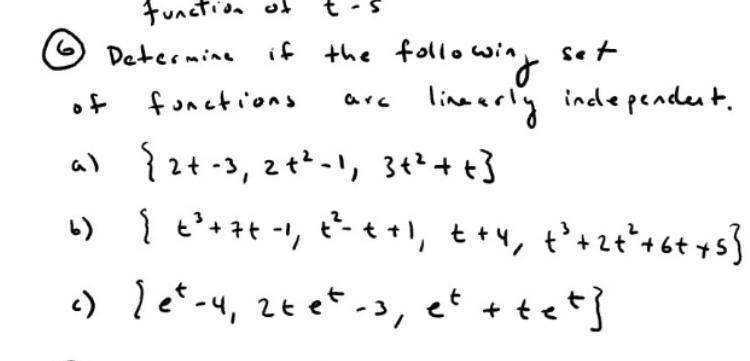 function of t - s
⑥ Determine if the following set
of functions are linearly independent.
a) { 2t - 3, 2t² - 1, 3t² + t}
b) { t³ + 7t - 1, t² - t + 1, t + 4, t³ + 2t² + 6t + 5}
c) { eᵗ - 4, 2t eᵗ - 3, eᵗ + t eᵗ}